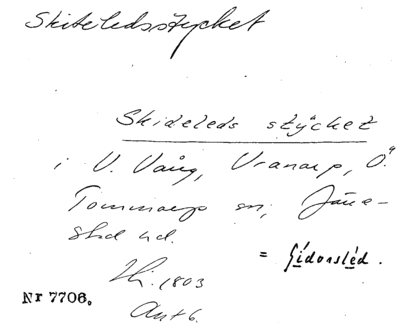 Skiteledsstycket
Skideleds stycket
i V. Vång, Vranarp, Ö.
Tommarp sn, Järre-
stad hd.
= Sídonsléd.
Hi. 1803
Nr 7706. Akt 6.